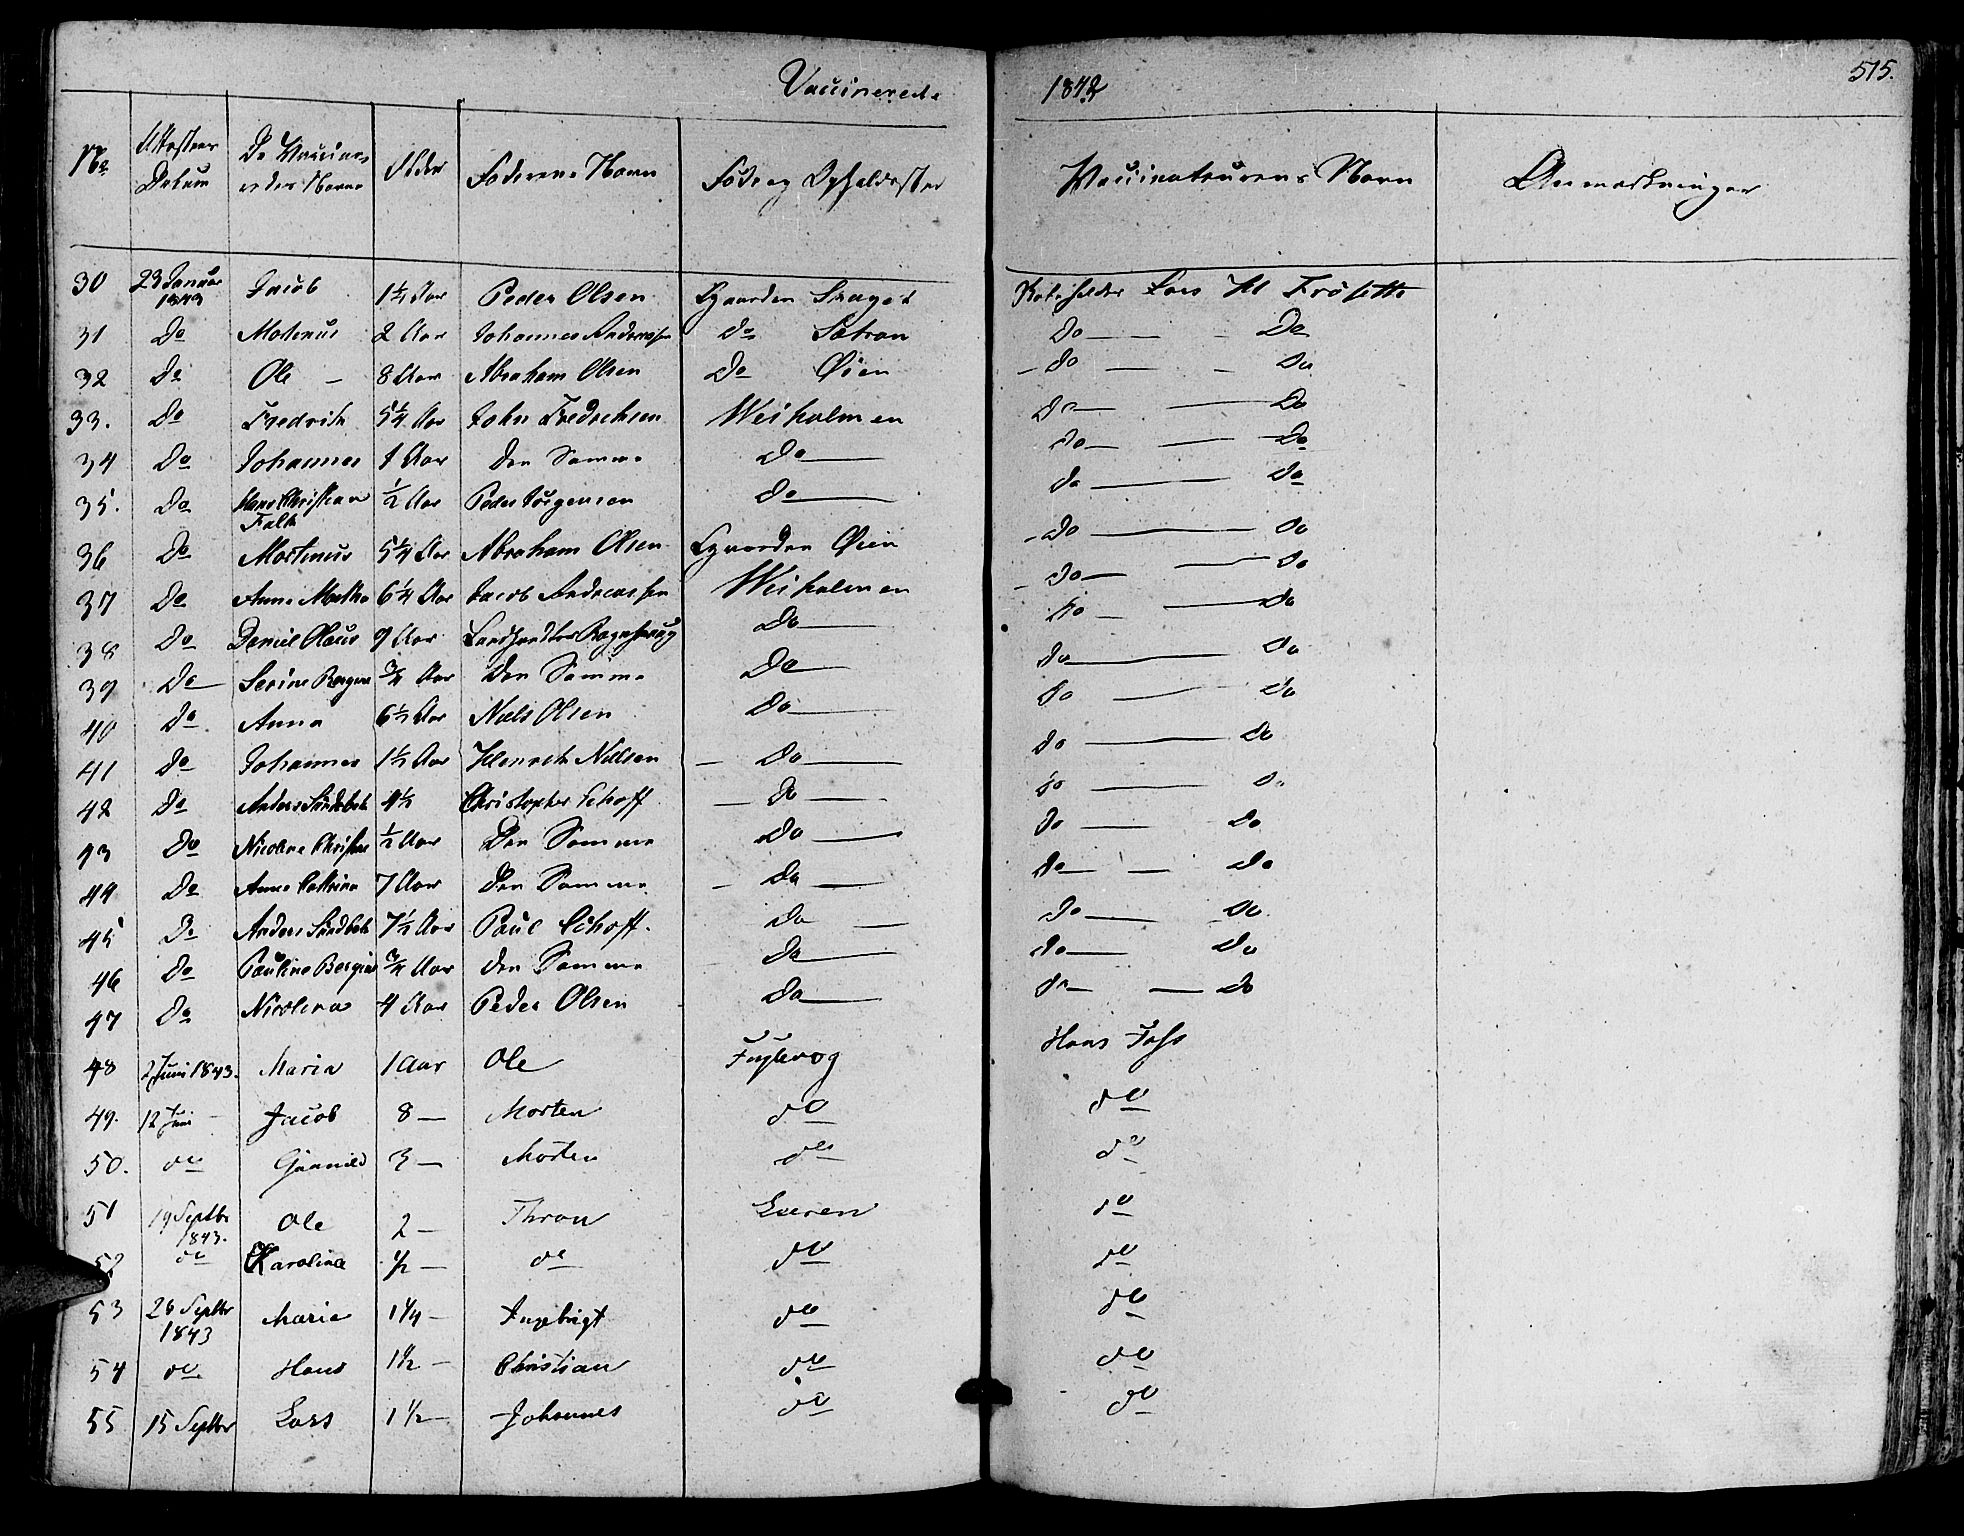 Vaccinerede 1843 515.
No Attestens Datum De Vaccineredes Navne Alder Fædrenes Navn Føde og Opholdssted Vaccinateurens Navn Anmærkninger
30 23 Januar 1843 Jacob 1 1/4 Aar Peder Olsen Gaarden Lars M Frösette
31 Do Matenus 2 Aar Johannes Andreassen do Sætran Do Do
32 Do Ole 8 Aar Abraham Olsen Do Øien do Do
33. Do Fredrich 5 1/4 Aar John Fredrichsen Weiholmen Do Do
34 Do Johannes 1 Aar Den Samme Do Do Do
35. Do Hans Christian Falk 1/2 Aar Peder Jörgensen Do Do Do
36 Do Martinus 5 1/4 Aar Abraham Olsen Gaarden Øien Do Do
37 Do Anne Martha 6 1/4 Aar Jacob Andreassen Weiholmen Do Do
38 Do Daniel Olaus 9 Aar Landhandler Do Do Do
39 Do Serine 3/4 Aar Den Samme Do Do Do
40 Do Anna 6 1/2 Aar Niels Olsen Do Do Do
41 Do Johannes 1 1/2 Aar Henrich Nielsen Do Do Do
42 Do Anders 4 1/2 Christopher Schoff Do Do Do
43 Do Nicoline Christine 1/2 Aar Den Samme Do Do Do
44 Do Anne Cathrine 7 Aar Den Samme Do Do Do
45 Do Anders 7 1/2 Aar Paul Schoff. Do Do Do
46 Do Pauline 3/4 Aar Den Samme Do Do Do
47 Do Nicolina 4 Aar Peder Olsen Do Do Do
48 2 Juni 1843. Maria 1 Aar Ole Fuglevog Hans
49. 12 Juni Jacob 8 — Morten do do
50. do Gunnild 3 — Morten do do
51 19 Septbr 1843. Ole 2 — Thron Lueren do
52 do Karoline 1/2 — do do do
53 26 Septbr 1843 Marie 1 1/4 — Ingebrigt do do
54 do Hans 1 1/2 — Christian do do
55 15 Septbr Lars 1 1/2 — Johannes do do